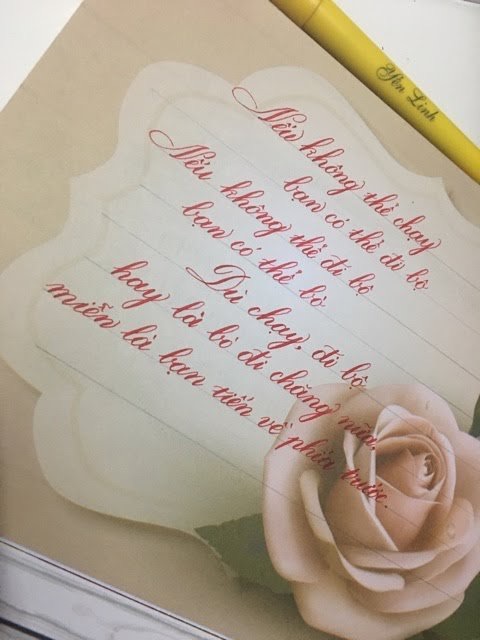 Yên Linh
Nếu không thể chạy
bạn có thể đi bộ
Nếu không thể đi bộ
bạn có thể bò
Dù chạy, đi bộ
hay là bò đi chăng nữa.
miễn là bạn tiến về phía trước.